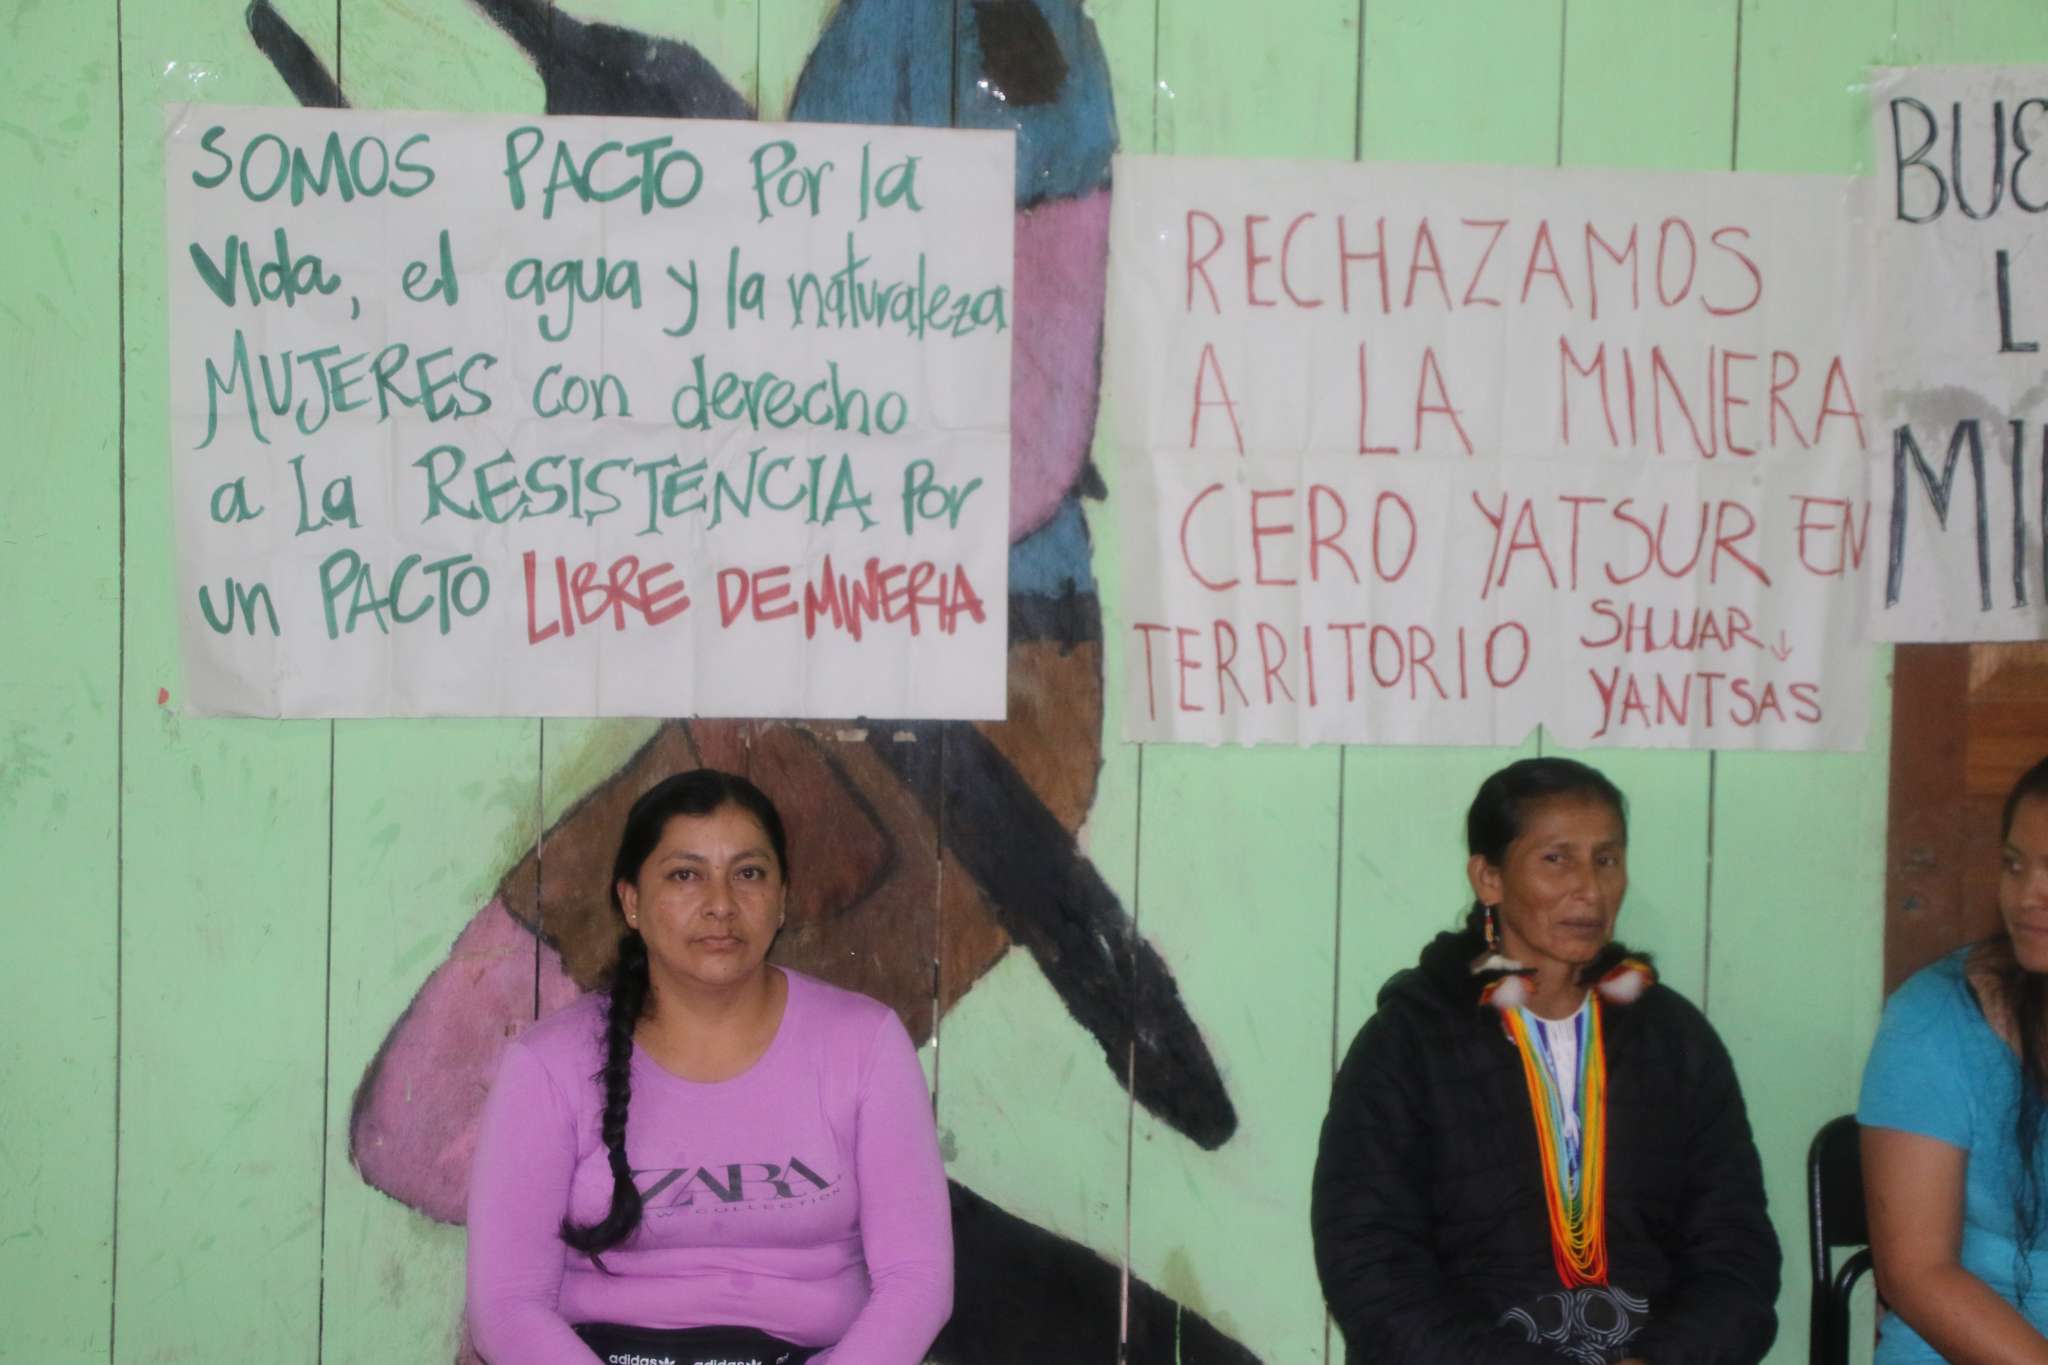 SOMOS PACTO Por la
vida, el agua y la naturaleza
MUJERES con derecho
a la RESISTENCIA Por
un PACTO LIBRE DE MINERIA
RECHAZAMOS
A LA MINERA
CERO YATSUR EN
TERRITORIO SHUAR ↓
YANTSAS
BUE
L
MI
ZARA
COLLECTION
adidas adidas